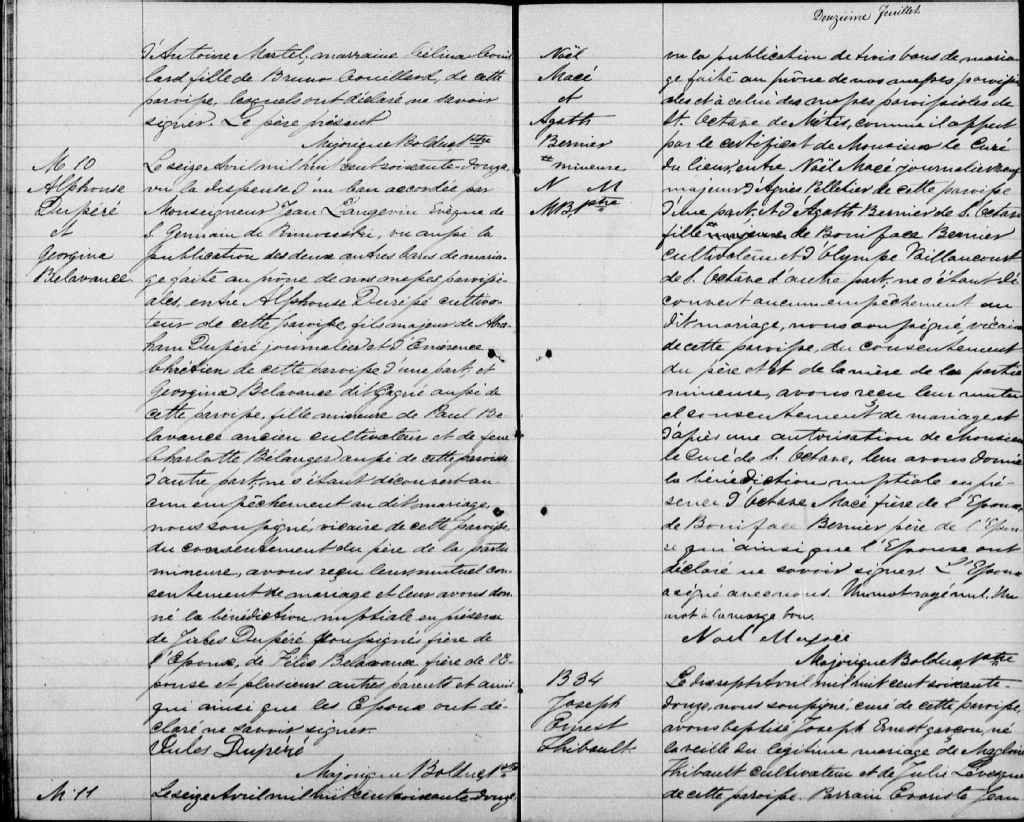 d'Antoine Martel, marraine Célina Couil
lard fille de Bruno Couillard, de cette
paroisse, lesquels ont déclaré ne savoir
signer. Le père présent
Majorique Bolduc Ptre
M 10
Alphonse
Dupéré
et
Georgina
Belavance
Le seize Avril mil huit cent soixante-douze,
vu la dispense d'un ban accordée par
Monseigneur Jean Langevin Evêque de
S. Germain de Rimouski, vu aussi la
publication des deux autres bans de maria-
ge faite au prône de nos messes paroissi-
ales, entre Alphonse Dupéré cultiva-
teur de cette paroisse, fils majeur de Abra-
ham Dupéré journalier et d'Emérence
Chrétien de cette paroisse d'une part, et
Georgina Belavance dit Gagné aussi de
cette paroisse, fille mineure de Paul Be-
lavance ancien cultivateur et de feue
Charlotte Bélanger aussi de cette paroisse
d'autre part, ne s'étant découvert au-
cun empêchement au dit mariage,
nous soussigné, vicaire de cette paroisse,
du consentement du père de la partie
mineure, avons reçu leur mutuel con-
sentement de mariage et leur avons don-
né la bénédiction nuptiale en présence
de Jules Dupéré soussigné frère de
l'Epoux, de Félix Belavance frère de l'E-
pouse et plusieurs autres parents et amis
qui ainsi que les Epoux ont dé-
claré ne savoir signer.
Jules Dupéré
Majorique Bolduc Ptre
M 11
Le seize Avril mil huit cent soixante-douze,
Douzième feuillet.
Noël
Macé
et
Agath
Bernier
mineure
N M
MB Ptre
vu la publication de trois bans de maria-
ge faite au prône de nos messes paroissi-
ales et à celui des messes paroissiales de
St. Octave de Métis, comme il appert
par le certificat de Monsieur le Curé
du lieu, entre Noël Macé journalier
majeur d'Agnès Pelletier de cette paroisse
d'une part, et d'Agath Bernier de S. Octave
fille majeure de Boniface Bernier
cultivateur et d'Olympe Vaillancourt
de S. Octave d'autre part, ne s'étant dé-
couvert aucun empêchement au
dit mariage, nous soussigné, vicaire
de cette paroisse, du consentement
du père et de la mère de la partie
mineure, avons reçu leur mutu-
el consentement de mariage et
d'après une autorisation de Monsieur
le Curé de S. Octave, leur avons donné
la bénédiction nuptiale en pré-
sence d'Octave Macé frère de l'Epoux,
de Boniface Bernier père de l'Epou-
se qui ainsi que l'Epouse ont
déclaré ne savoir signer. L'Epoux
a signé avec nous. Un mot rayé nul. Un
mot à la marge bon.
Noël
Majorique Bolduc Ptre
B 34
Joseph
Ernest
Thibault.
Le dix sept Avril mil huit cent soixante-
douze, nous soussigné, curé de cette paroisse,
avons baptisé Joseph Ernest garçon, né
la veille du légitime mariage de Magloire
Thibault cultivateur et de Julie Levesque
de cette paroisse. Parrain Evariste Jean